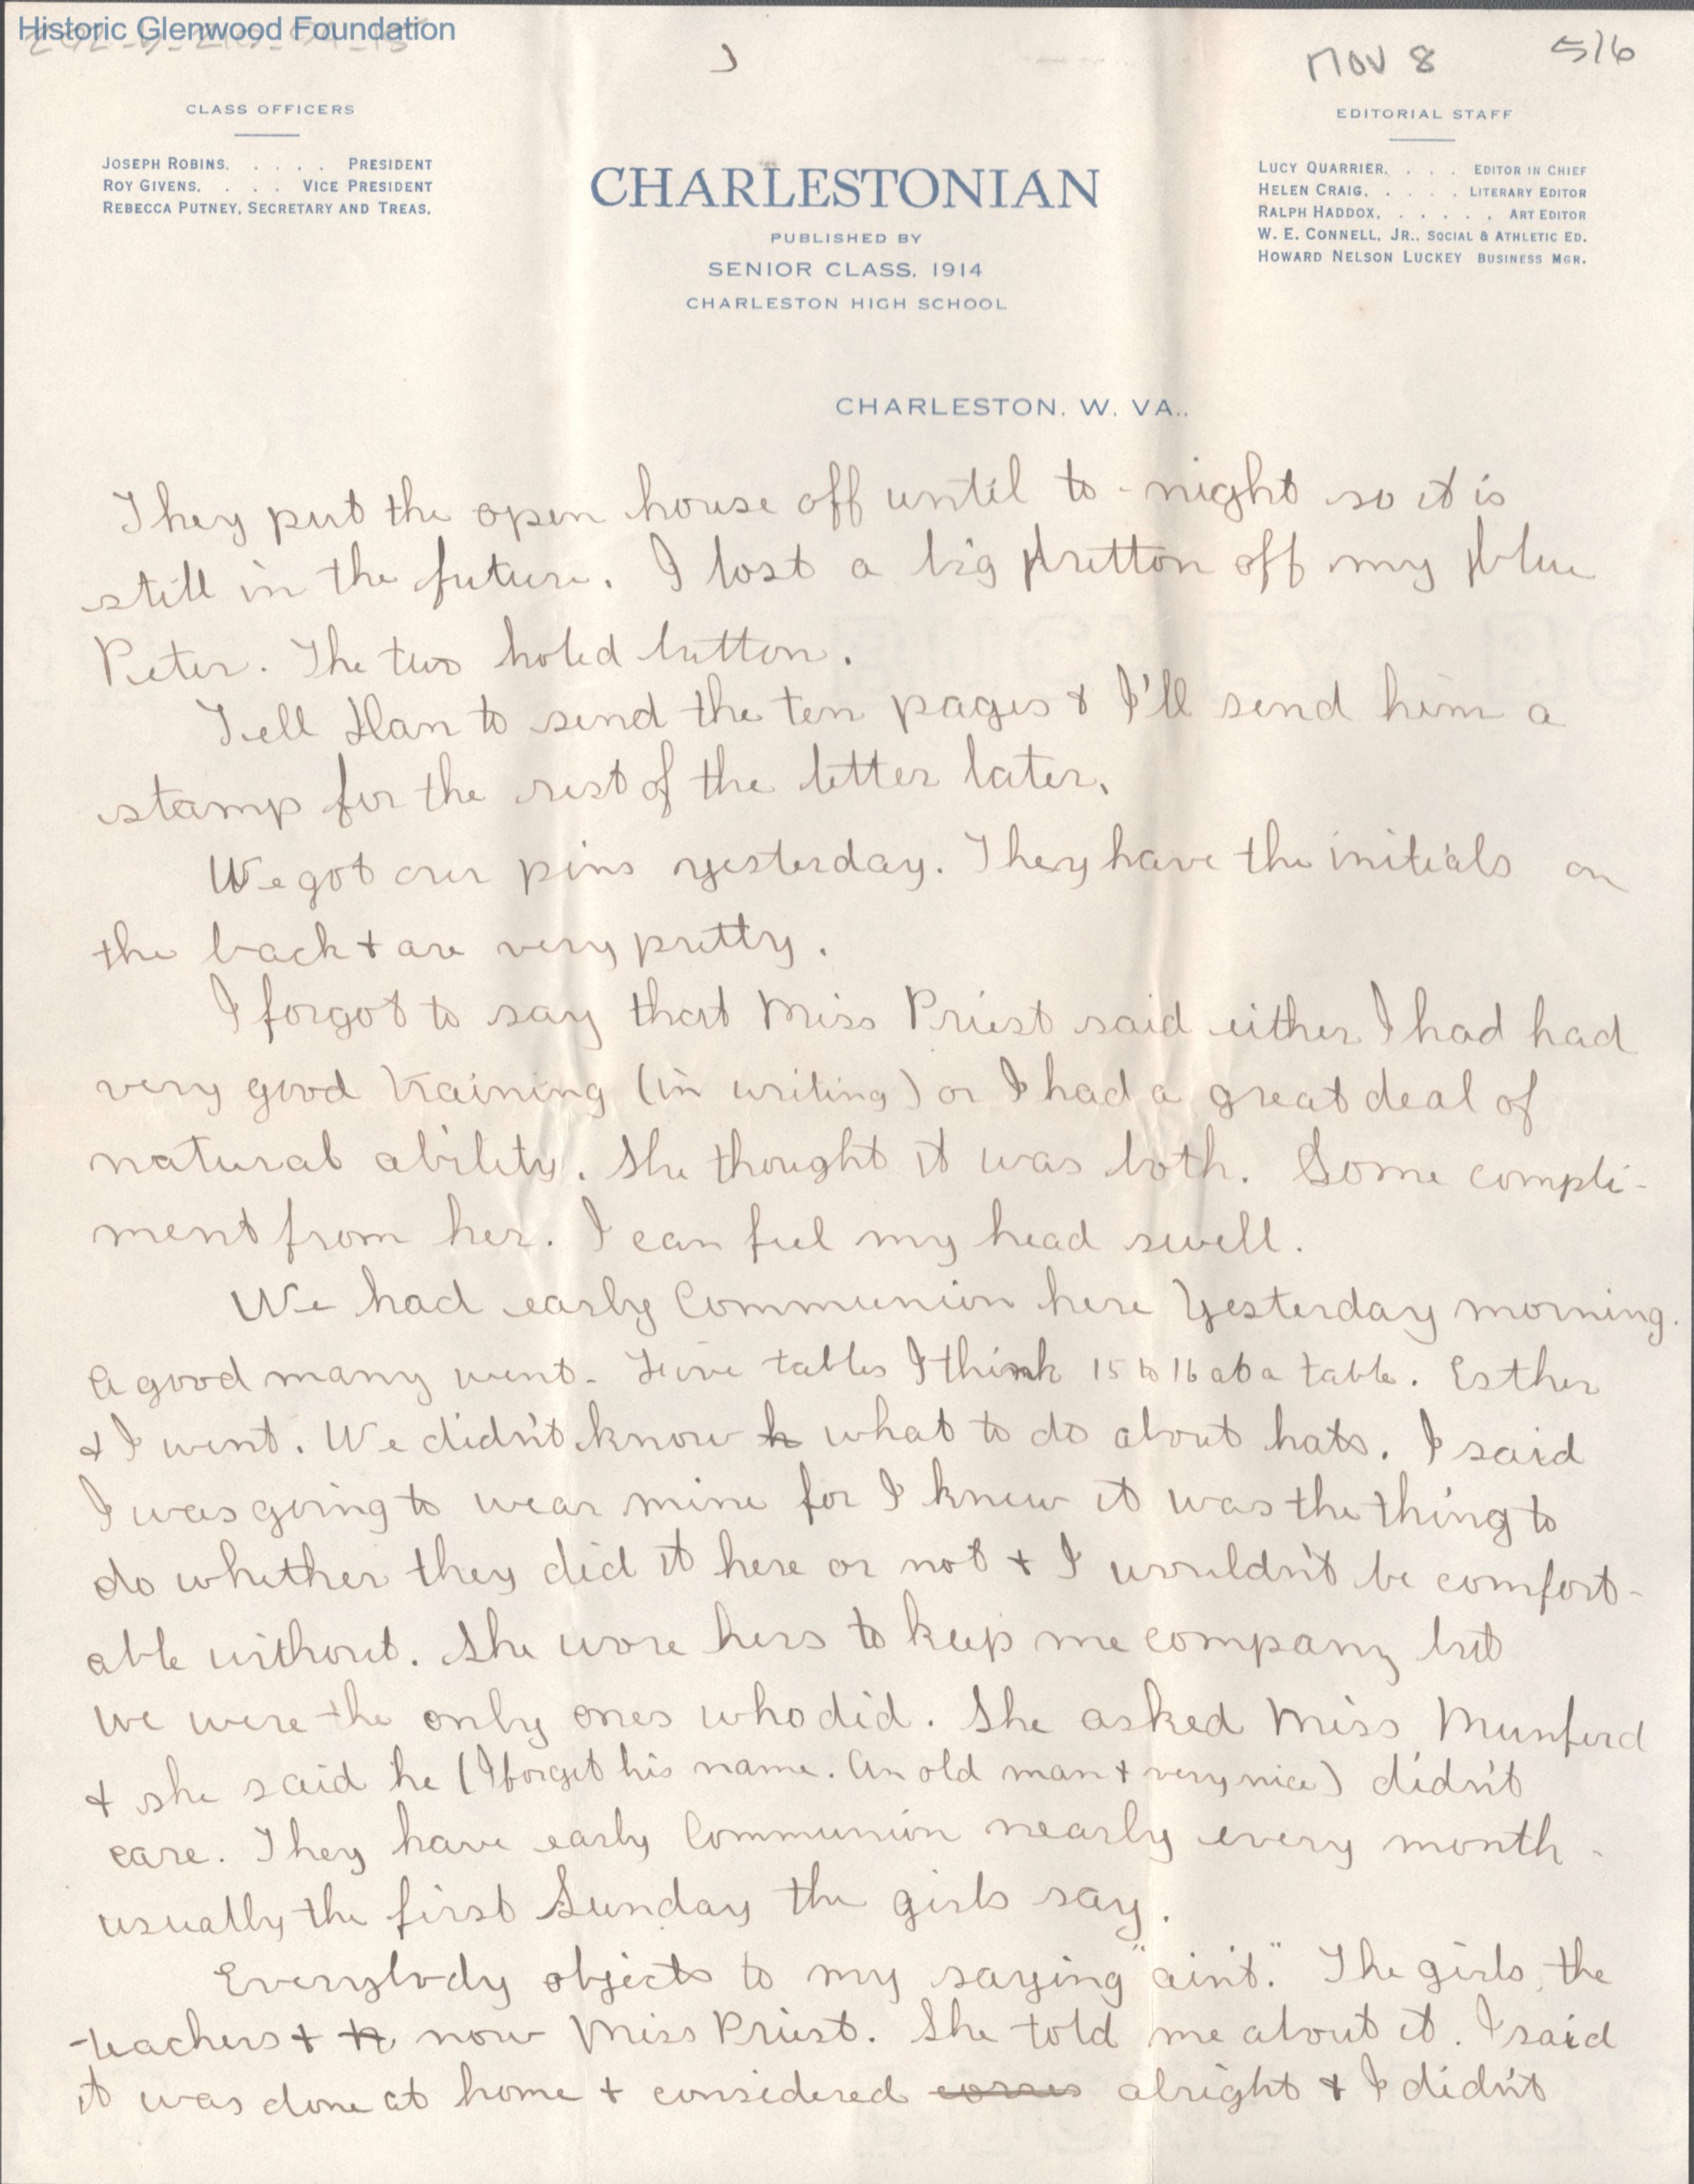 Historic Glenwood Foundation
NOV 8 516
CLASS OFFICERS
JOSEPH ROBINS. . . . . PRESIDENT
ROY GIVENS. . . . VICE PRESIDENT
REBECCA PUTNEY, SECRETARY AND TREAS.
CHARLESTONIAN
PUBLISHED BY
SENIOR CLASS, 1914
CHARLESTON HIGH SCHOOL
EDITORIAL STAFF
LUCY QUARRIER. . . . EDITOR IN CHIEF
HELEN CRAIG. . . . . LITERARY EDITOR
RALPH HADDOX. . . . . . ART EDITOR
W. E. CONNELL, JR., SOCIAL & ATHLETIC ED.
HOWARD NELSON LUCKEY BUSINESS MGR.
CHARLESTON, W. VA.,
They put the open house off until to-night so it is
still in the future. I lost a big button off my blue
Peter. The two holed button.
Tell Dan to send the ten pages & I'll send him a
stamp for the rest of the letter later.
We got our pins yesterday. They have the initials on
the back & are very pretty.
I forgot to say that Miss Priest said either I had had
very good training (in writing) or I had a great deal of
natural ability. She thought it was both. Some compli-
ment from her. I can feel my head swell.
We had early Communion here yesterday morning.
A good many went - Five tables I think 15 to 16 at a table. Esther
& I went. We didn't know h what to do about hats. I said
I was going to wear mine for I knew it was the thing to
do whether they did it here or not & I wouldn't be comfort-
able without. She wore hers to keep me company but
we were the only ones who did. She asked Miss Munford
& she said he (I forget his name. An old man & very nice) didn't
care. They have early Communion nearly every month -
usually the first Sunday the girls say.
Everybody objects to my saying "ain't." The girls, the
teachers & now Miss Priest. She told me about it. I said
it was done at home & considered corres alright & I didn't